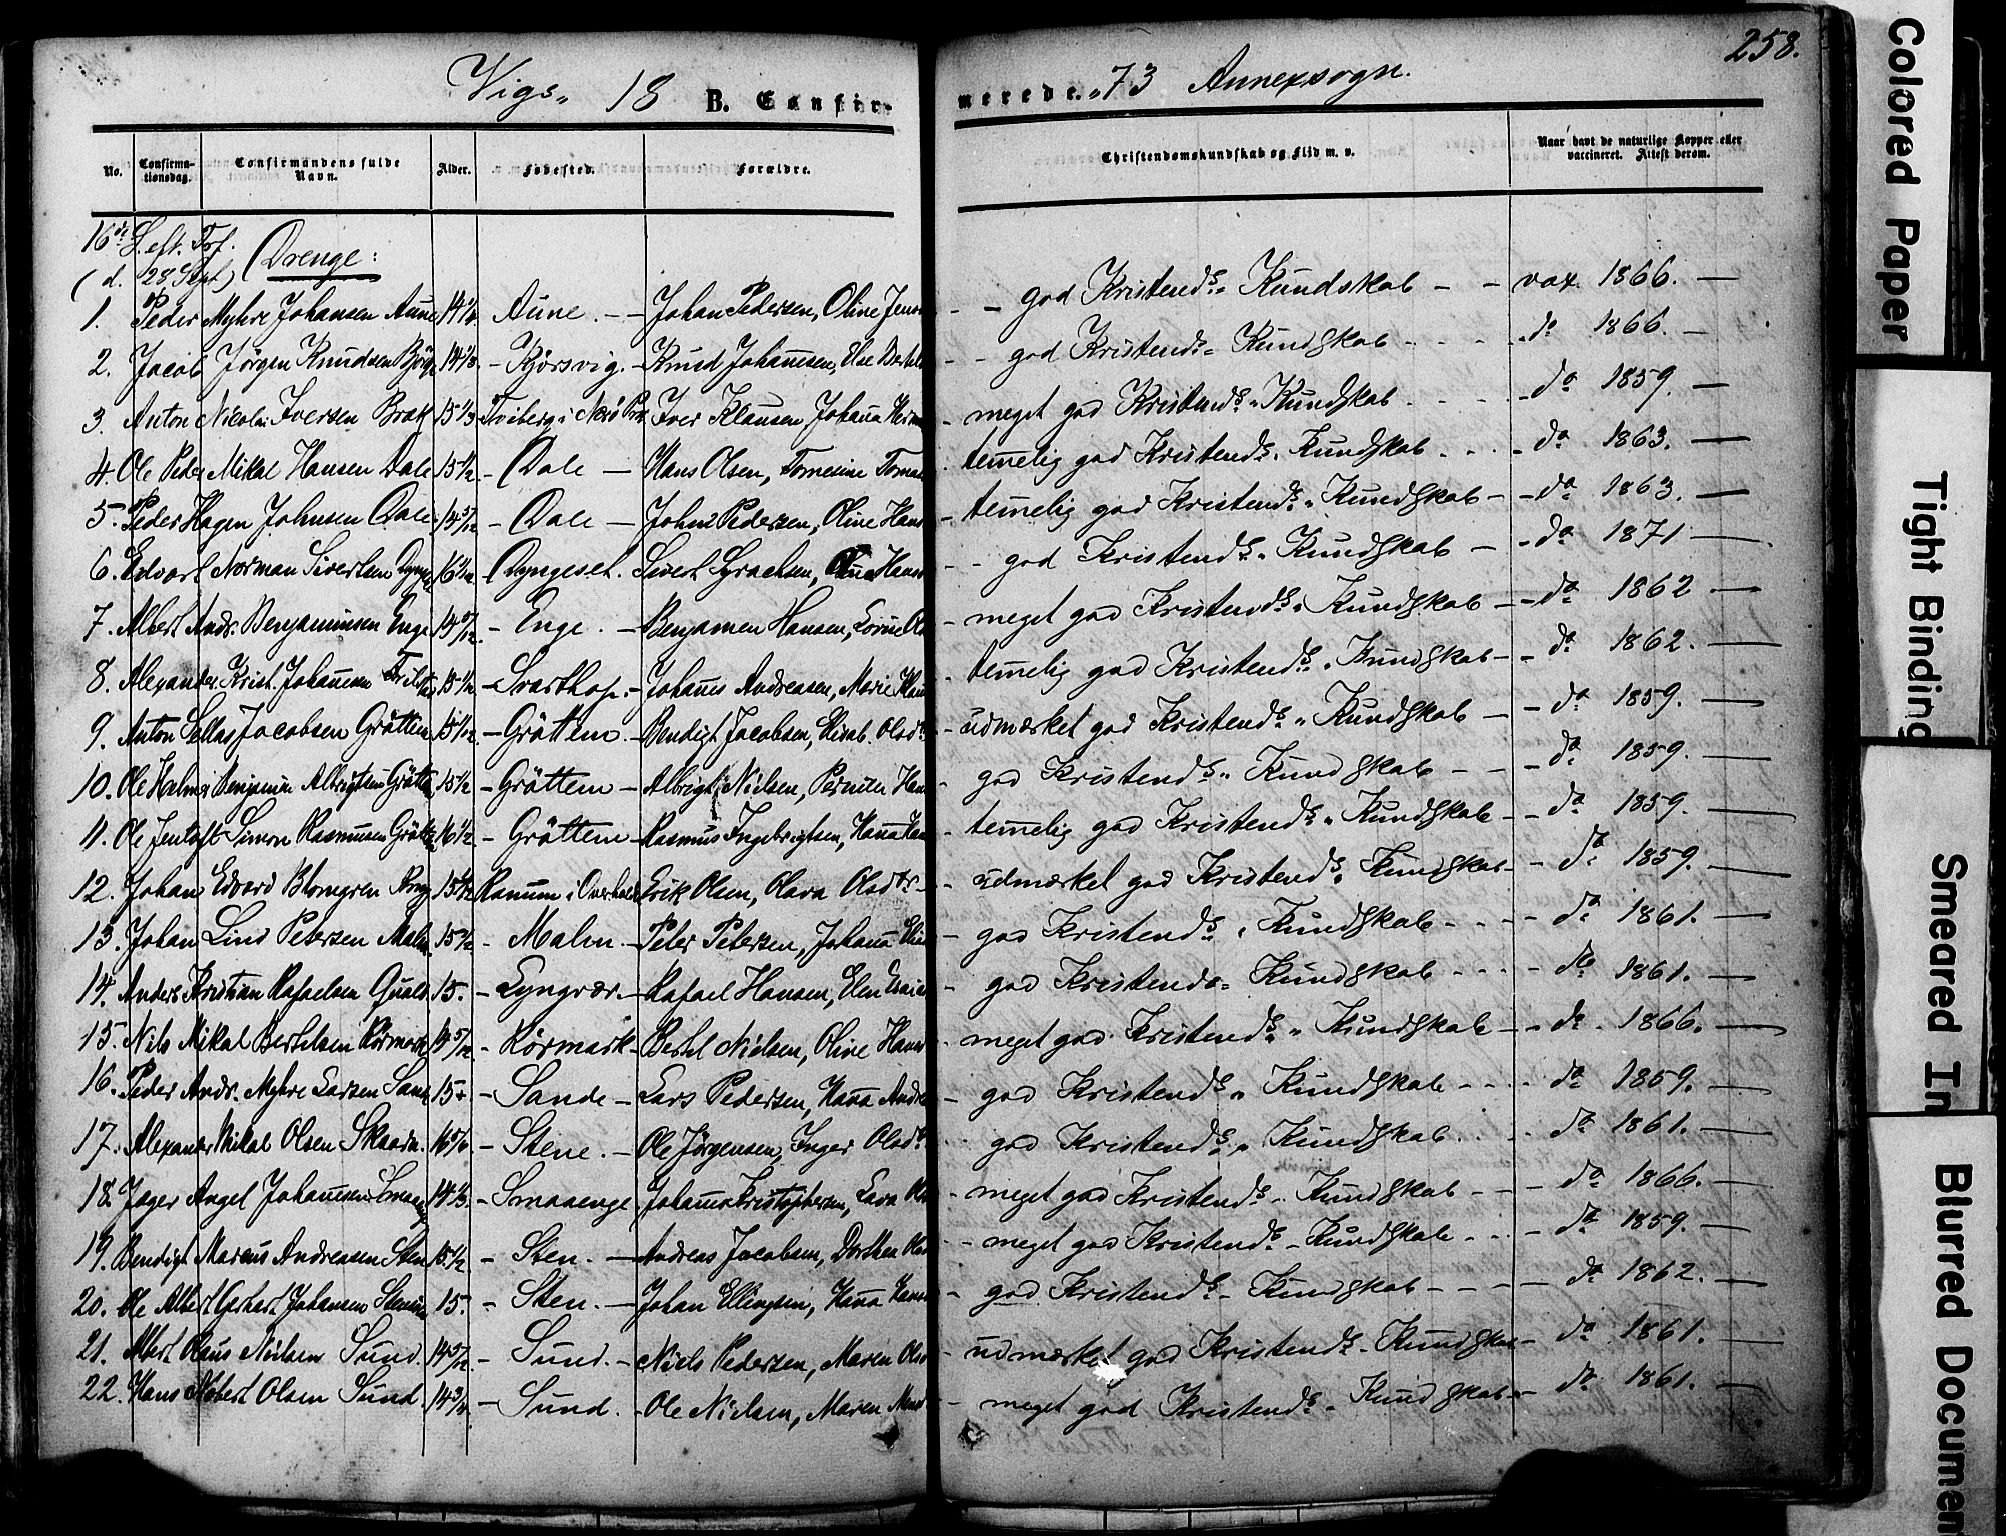 258.
Vigs„ 18 B. Confir-merede. „73 Annexsogn.
No. Confirmationsdag. Confirmandens fulde Navn. Alder. Fødested. Forældre. Christendomskundskab og Flid m. v. Naar havt de naturlige Kopper eller vaccineret. Attest derom.
16de S. eft. Tref.
(d. 28 Sept) Drenge:
1. Peder Myhre Johansen Aune 14 Aune. - - Johan Pedersen, Oline - - god Kristends„ Kundskab - - vax. 1866. -
2. Jacob Jörgen Knudsen 14 - Kjörsvig. - Knud Johannsen, - - god Kristends„ Kundskab - - - do 1866. -
3. Anton Nicolai Iversen 15 1/3 i Iver Klausen, Johana - meget god Kristends„ Kundskab - - - do 1859. -
4. Ole Peder Mikal Hansen Dale 15 1/2 - Dale - Hans Olsen, - temelig god Kristends„ Kundskab - - - do 1863. -
5. Peder Hagen Johnsen Dale 14 5/12 - Dale - Pedersen, Oline Hans - temelig god Kristends„ Kundskab - - do 1863. -
6. Edvart Norman Sivertsen 16 - Dyngeset. Sivert - - god Kristends„ Kundskab - - do 1871 -
7. Albert Andr. Benjaminsen Enge 14 5/12 - Enge. - Benjamen Hansen, - meget god Kristends„ Kundskab - - do 1862 -
8. Alexander Krist. 15 1/2 - Svarthop. - Johanes Andreasen, Marie - temelig god Kristends„ Kundskab - - do 1862. -
9. Anton Sellas Jacobsen Gröttem - Gröttem. - Bendigt Jacobsen, Elisab. Olsdr - udmærket god Kristends„ Kundskab - - do 1859. -
10. Ole Benjamin Albrigtsen 15 1/2 - Gröttem - Albrigt Nielsen, Hans - god Kristends„ Kundskab - - - do 1859. -
11. Ole Jentoft Simon Rasmussen 16 1/2 - Gröttem - Rasmus Ingebrigtsen, Hana - temelig god Kristends„ Kundskab - - do 1859. -
12. Johan Edvard Blomgren Ranum i Overhald Erik Olsen, Olava Olsdtr - - udmærket god Kristends„ Kundskab - - do 1859. -
13. Johan Lind Petersen Malm 15 - Malm - Peter Petersen, Johana - god Kristends„ Kundskab - - - do 1861. -
14. Anders Kristian Rafaelsen 15. - Lyngvær. - Rafael Hansen, Elen - god Kristends„ Kundskab - - - do 1861. -
15. Nils Mikal Bertelsen 14 5/12 - Körmark - Bertel Nielsen, Oline Hans - meget god Kristends„ Kundskab - - do. 1866. -
16. Peder Andr. Myhre Larsen 15 - Sande - Lars Pedersen, Hana Andr - god Kristends„ Kundskab - - - do 1859. -
17. Alexander Mikal Olsen - Stene. - Ole Jörgensen, Inger Olsdr - - god Kristends„ Kundskab - - - do 1861. -
18. Angel Johannesen 14 1/3. - Smaaenge Johannes Kristophersen, - meget god Kristends„ Kundskab - - - do 1866. -
19. Bendigt Marcus Andreasen Sten 15 1/2. - Sten. - Andreas Jacobsen, Dorthea - - meget god Kristends„ - Kundskab - - - do 1859. -
20. Ole Albert Gerhart Johansen 15. - Sten. - Johan Ellingsen, Hana - god Kristends„ Kundskab - - - do 1862. -
21. Albert Claus Nielsen Sund. 14 5/12 - Sund. - Niels Pedersen, Maren Olsd - udmærket god Kristends„ Kundskab - do 1861. -
22. Hans Olsen Sund. 14 - Sund. - Ole Nielsen, Maren - meget god Kristends„ Kundskab - do 1861. -
Colored Paper
Tight Binding
Smeared In
Blurred Documen